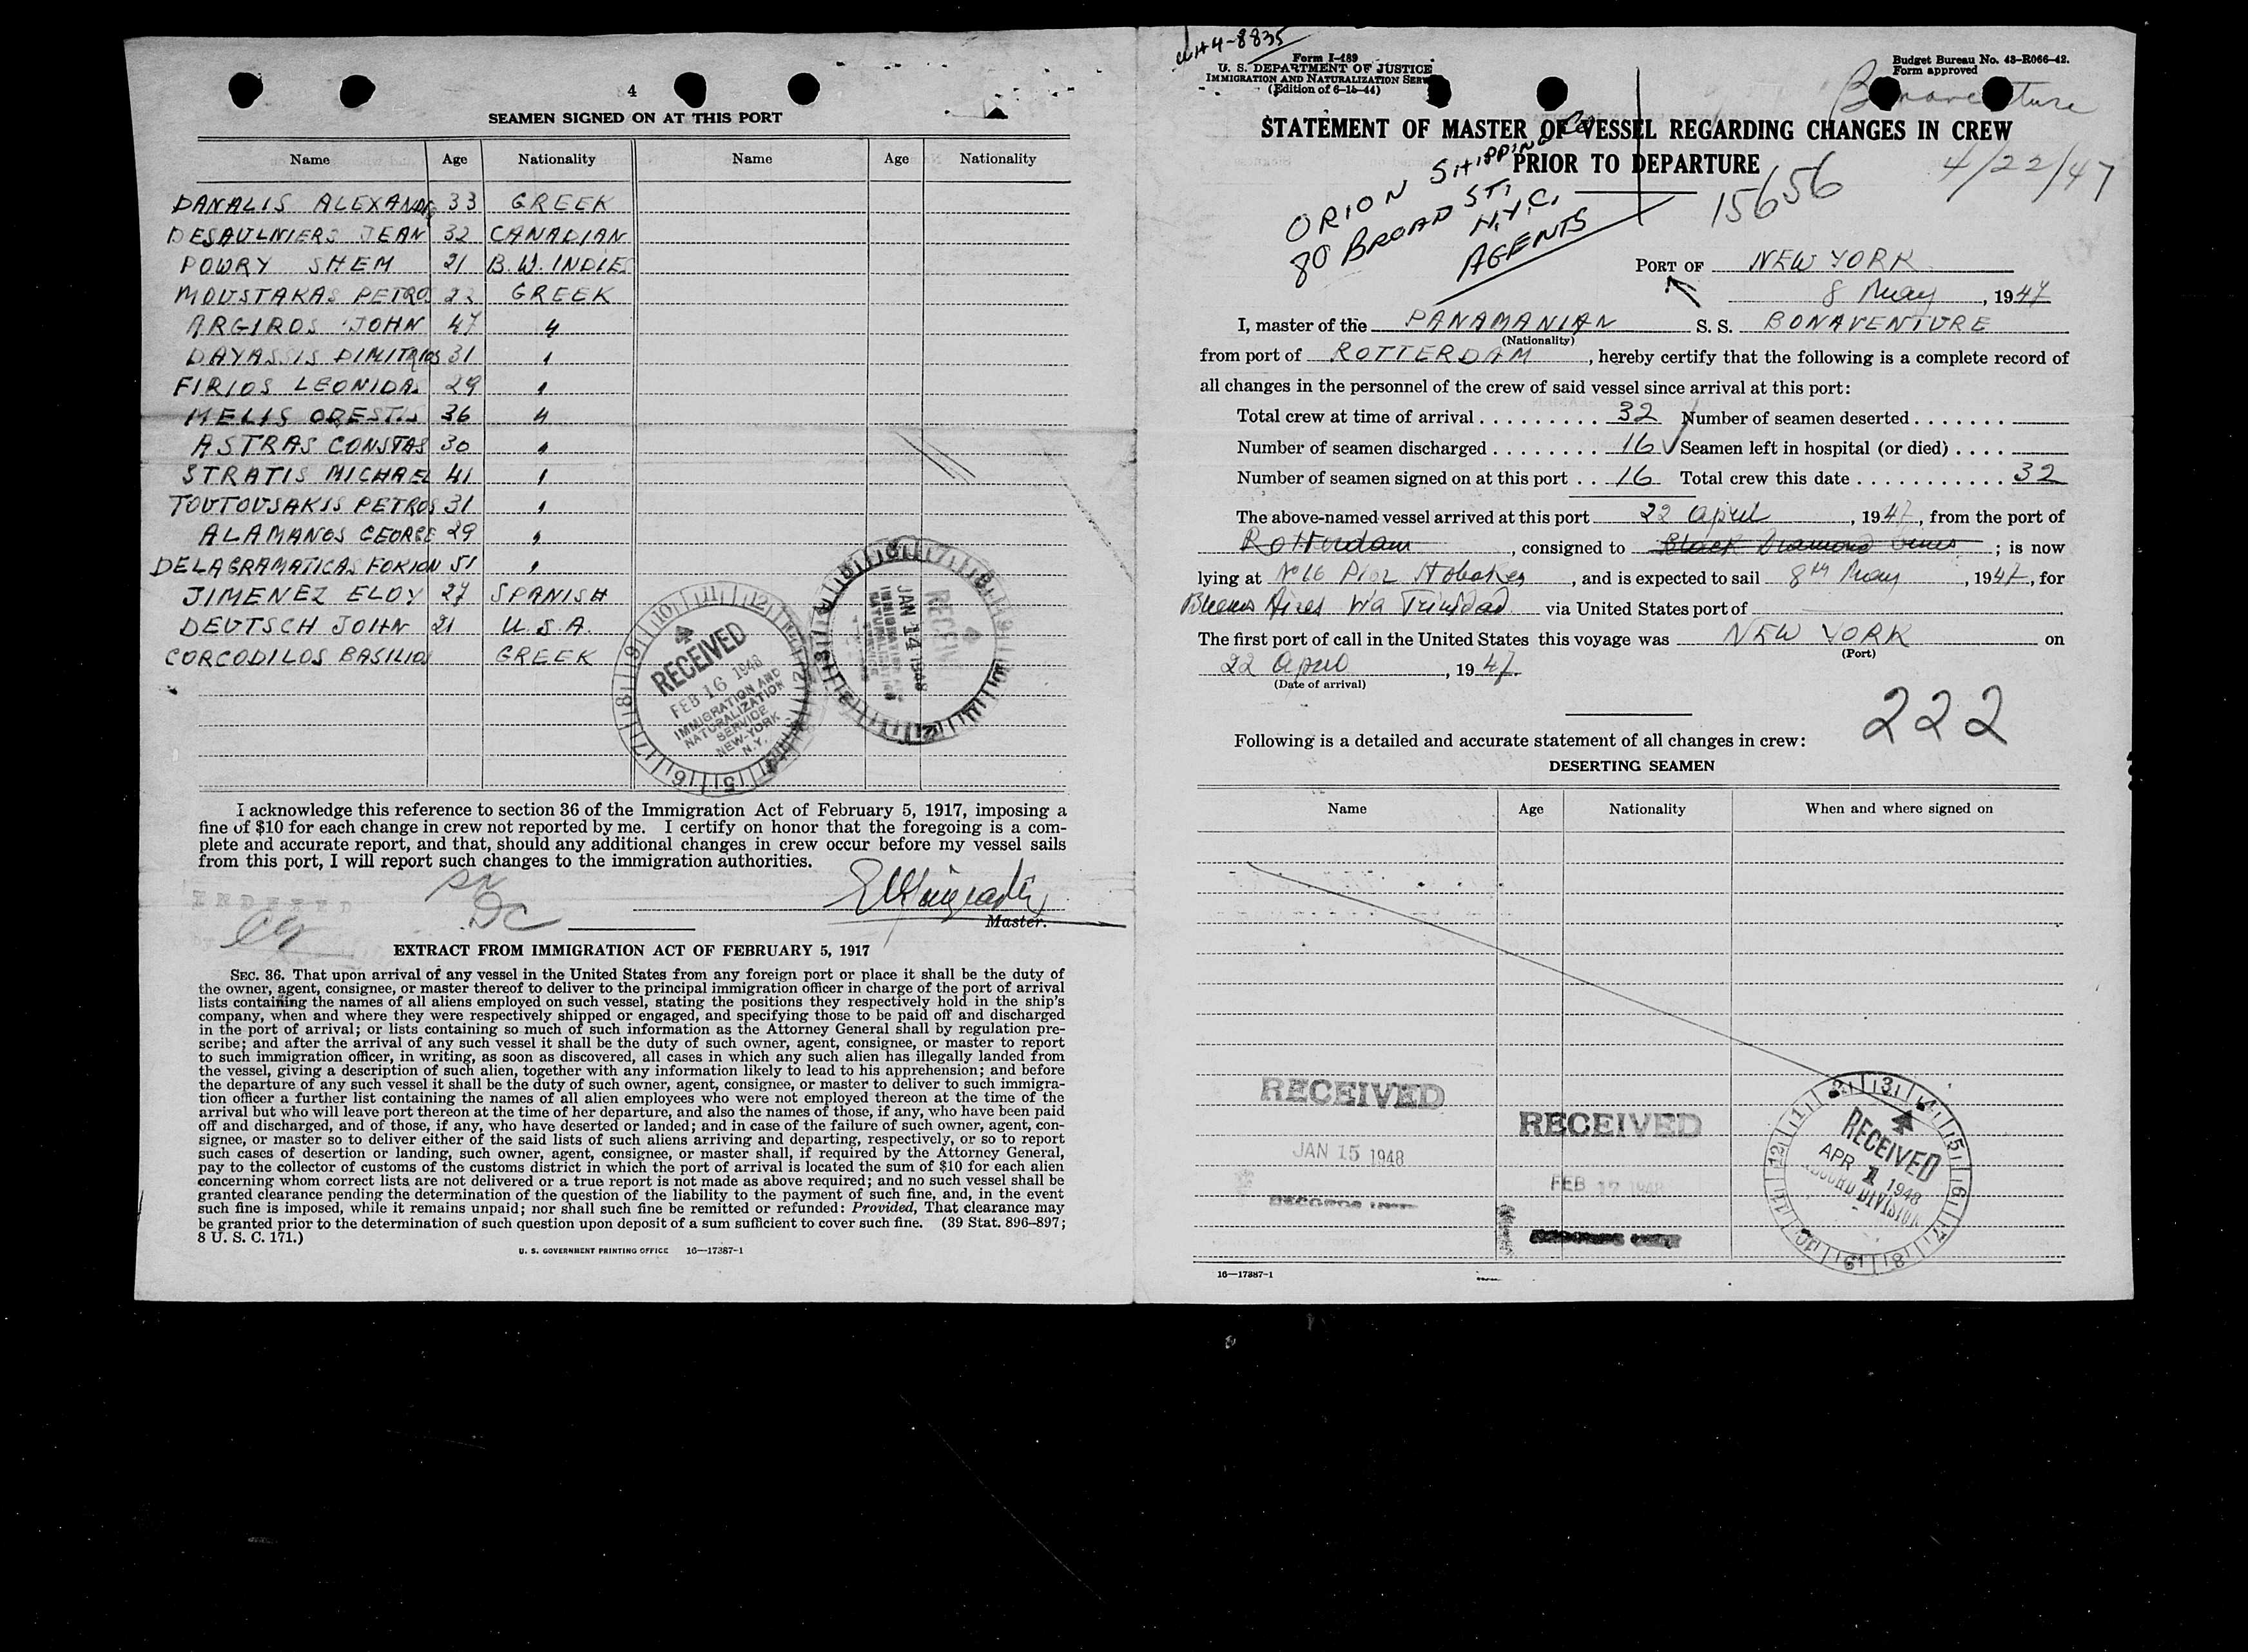 4
SEAMEN SIGNED ON AT THIS PORT
Name Age Nationality Name Age Nationality
DANALIS ALEXANDR 33 GREEK
DESAULNIERS JEAN 32 CANADIAN
POWRY SHEM 21 B.W. INDIES
MOUSTAKAS PETROS 23 GREEK
ARGIROS JOHN 47 "
DAYASSIS DIMITRIOS 31 "
FIRIOS LEONIDAS 29 "
MELIS ORESTIS 36 "
ASTRAS CONSTAS 30 "
STRATIS MICHAEL 41 "
TOUTOUSAKIS PETROS 31 "
ALAMANOS GEORGE 29 "
DELAGRAMATICAS FOKION 51 "
JIMENEZ ELOY 27 SPANISH
DEUTSCH JOHN 21 U.S.A.
CORCODILOS BASILIOS GREEK
RECEIVED
FEB 16 1948
IMMIGRATION AND
NATURALIZATION
SERVICE
NEW-YORK
N.Y.
RECEIVED
JAN 14 1948
IMMIGRATION AND
NATURALIZATION
I acknowledge this reference to section 36 of the Immigration Act of February 5, 1917, imposing a
fine of $10 for each change in crew not reported by me. I certify on honor that the foregoing is a com-
plete and accurate report, and that, should any additional changes in crew occur before my vessel sails
from this port, I will report such changes to the immigration authorities.
INDEXED
DC
Master.
EXTRACT FROM IMMIGRATION ACT OF FEBRUARY 5, 1917
SEC. 36. That upon arrival of any vessel in the United States from any foreign port or place it shall be the duty of
the owner, agent, consignee, or master thereof to deliver to the principal immigration officer in charge of the port of arrival
lists containing the names of all aliens employed on such vessel, stating the positions they respectively hold in the ship's
company, when and where they were respectively shipped or engaged, and specifying those to be paid off and discharged
in the port of arrival; or lists containing so much of such information as the Attorney General shall by regulation pre-
scribe; and after the arrival of any such vessel it shall be the duty of such owner, agent, consignee, or master to report
to such immigration officer, in writing, as soon as discovered, all cases in which any such alien has illegally landed from
the vessel, giving a description of such alien, together with any information likely to lead to his apprehension; and before
the departure of any such vessel it shall be the duty of such owner, agent, consignee, or master to deliver to such immigra-
tion officer a further list containing the names of all alien employees who were not employed thereon at the time of the
arrival but who will leave port thereon at the time of her departure, and also the names of those, if any, who have been paid
off and discharged, and of those, if any, who have deserted or landed; and in case of the failure of such owner, agent, con-
signee, or master so to deliver either of the said lists of such aliens arriving and departing, respectively, or so to report
such cases of desertion or landing, such owner, agent, consignee, or master shall, if required by the Attorney General,
pay to the collector of customs of the customs district in which the port of arrival is located the sum of $10 for each alien
concerning whom correct lists are not delivered or a true report is not made as above required; and no such vessel shall be
granted clearance pending the determination of the question of the liability to the payment of such fine, and, in the event
such fine is imposed, while it remains unpaid; nor shall such fine be remitted or refunded: Provided, That clearance may
be granted prior to the determination of such question upon deposit of a sum sufficient to cover such fine. (39 Stat. 896–897;
8 U. S. C. 171.)
U. S. GOVERNMENT PRINTING OFFICE 16—17387-1
WH4-8835
Form I-489
U. S. DEPARTMENT OF JUSTICE
IMMIGRATION AND NATURALIZATION SERV
(Edition of 6-15-44)
Budget Bureau No. 43-R066-42.
Form approved
Bonaventure
STATEMENT OF MASTER OF VESSEL REGARDING CHANGES IN CREW
PRIOR TO DEPARTURE
4/22/47
15656
ORION SHIPPING Co
80 BROAD ST.
N.Y.C.
AGENTS
PORT OF NEW YORK
8 May, 1947
I, master of the PANAMANIAN S. S. BONAVENTURE
(Nationality)
from port of ROTTERDAM, hereby certify that the following is a complete record of
all changes in the personnel of the crew of said vessel since arrival at this port:
Total crew at time of arrival 32 Number of seamen deserted
Number of seamen discharged 16 Seamen left in hospital (or died)
Number of seamen signed on at this port 16 Total crew this date 32
The above-named vessel arrived at this port 22 April, 1947, from the port of
Rotterdam, consigned to Black Diamond Lines; is now
lying at No 16 Pier Hoboken, and is expected to sail 8th May, 1947, for
Buenos Aires via Trinidad via United States port of
The first port of call in the United States this voyage was NEW YORK on
(Port)
22 April, 1947.
(Date of arrival)
222
Following is a detailed and accurate statement of all changes in crew:
DESERTING SEAMEN
Name Age Nationality When and where signed on
RECEIVED
JAN 15 1948
RECEIVED
FEB 17 1948
RECEIVED
APR 1 1948
RECORD DIVISION
16—17387-1